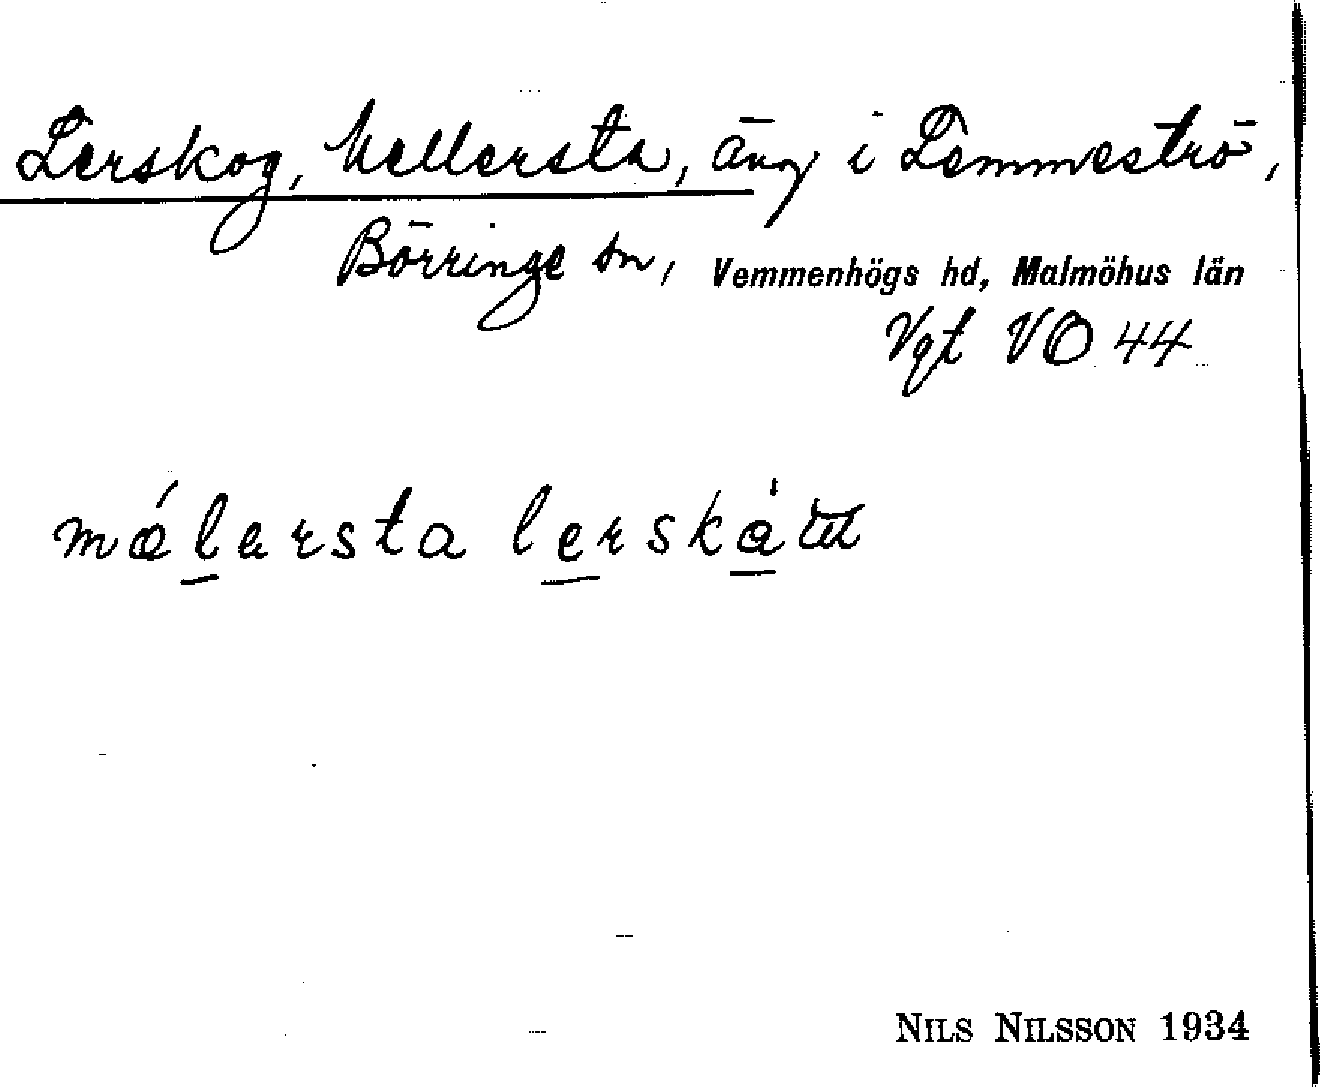 Lerskog, Mellersta, äng i Lemmeströ,
Börringe sn, Vemmenhögs hd, Malmöhus län
Vgt VO 44
NILS NILSSON 1934